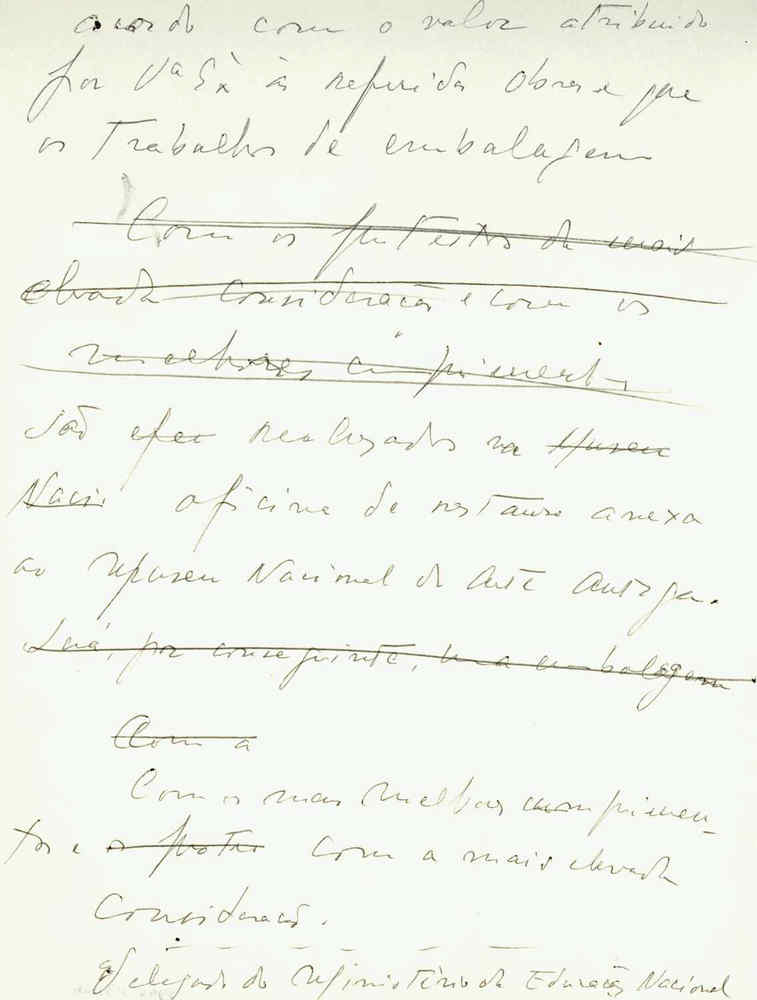 acordo com o valor atribuido
por Vª Exª às referidas obras e que
os trabalhos de embalagem
Com os protestos da mais
elevada consideração e com os
melhores cumprimentos
são efec realizados na Museu
Nacio oficina de restauro anexa
ao Museu Nacional de Arte Antiga.
Será, por conseguinte, uma embalagem
Com a
Com os meus melhores cumprimen-
tos e os protes com a mais elevada
consideração.
Delegado do Ministério da Educação Nacional